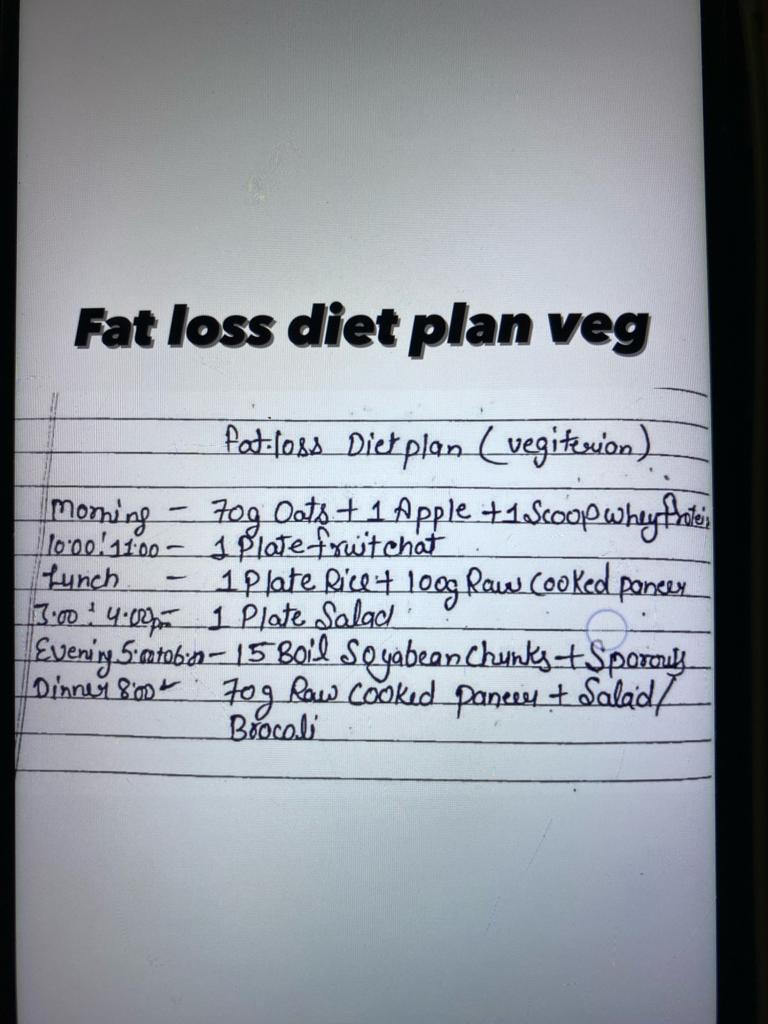 Fat loss diet plan veg
Fat-loss Diet plan (vegiterion)
Morning - 70g Oats + 1 Apple + 1 Scoop whey Protein
10:00! 11:00 - 1 Plate fruit chat
Lunch - 1 Plate Rice + 100g Raw Cooked paneer
3:00! 4:00pm - 1 Plate Salad
Evening 5:00 to 6:00 - 15 Boil Soyabean Chunks + Sporouts
Dinner 8:00 70g Raw Cooked paneer + Salad/
Brocoli